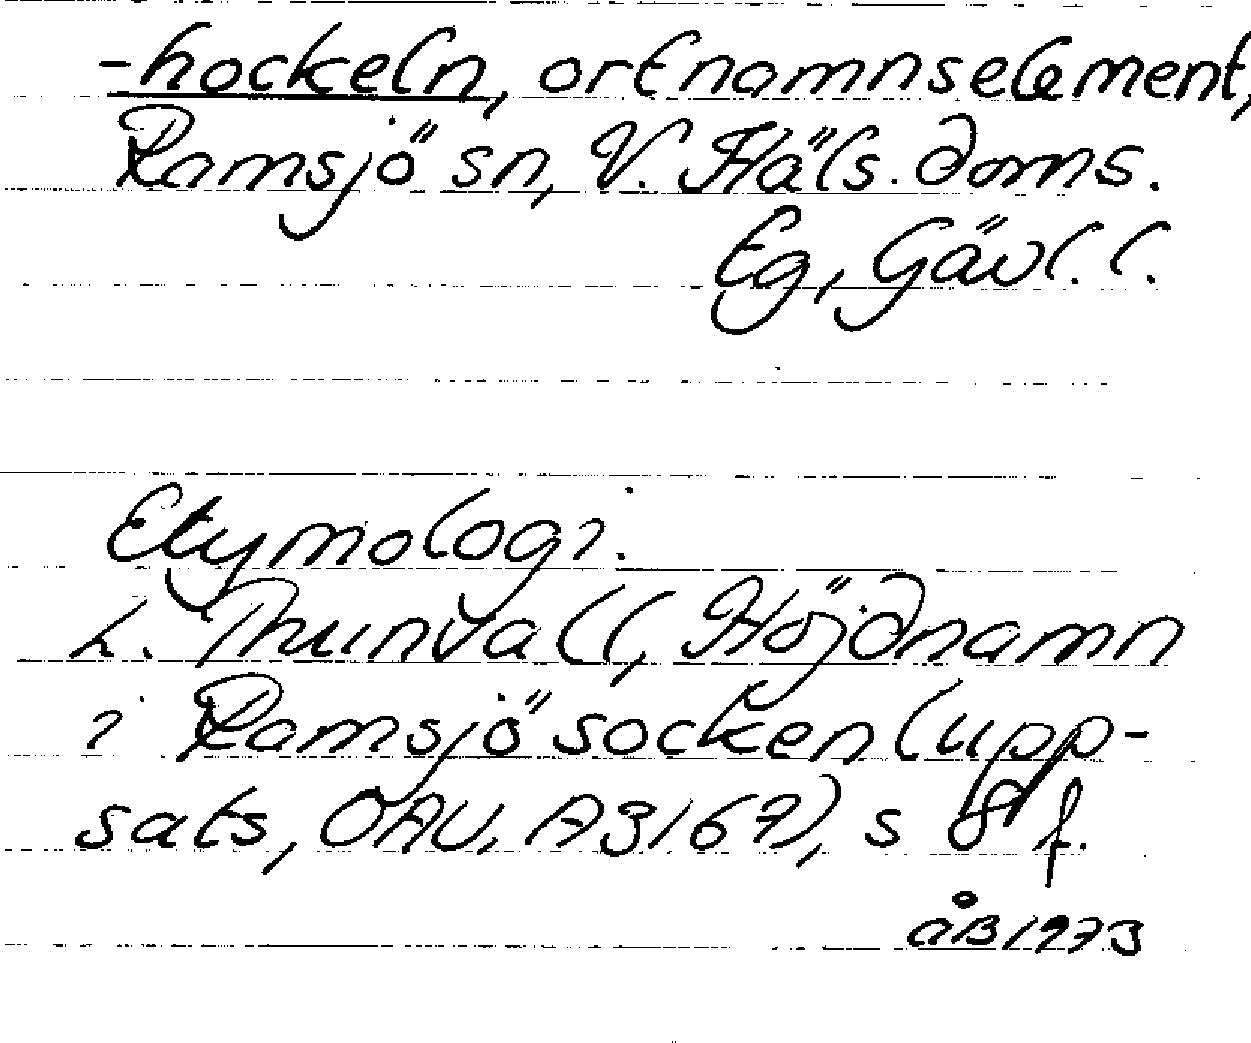 -hockeln, ortnamnselement,
Ramsjö sn, V. Häls. doms.
Eg, Gävl. l.
Etymologi.
L. Thunvall, Höjdnamn
i Ramsjö socken (upp-
sats, OAU, A3167), s 8 f.
ÅB 1973